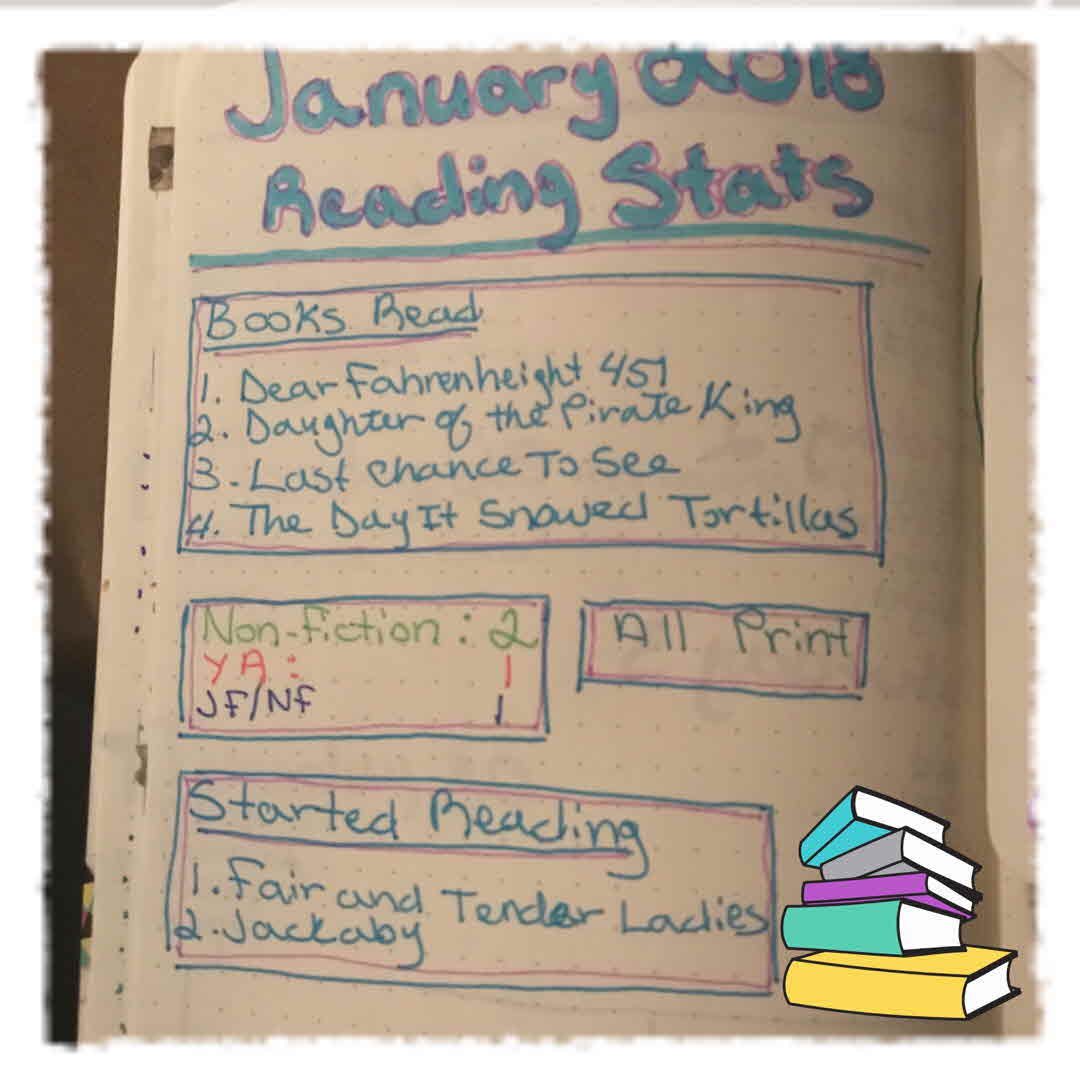 January 2018
Reading Stats
Books Read
1. Dear Fahrenheight 451
2. Daughter of the Pirate King
3. Last Chance To See
4. The Day It Snowed Tortillas
Non-Fiction: 2
YA: 1
JF/NF 1
All Print
Started Reading
1. Fair and Tender Ladies
2. Jackaby